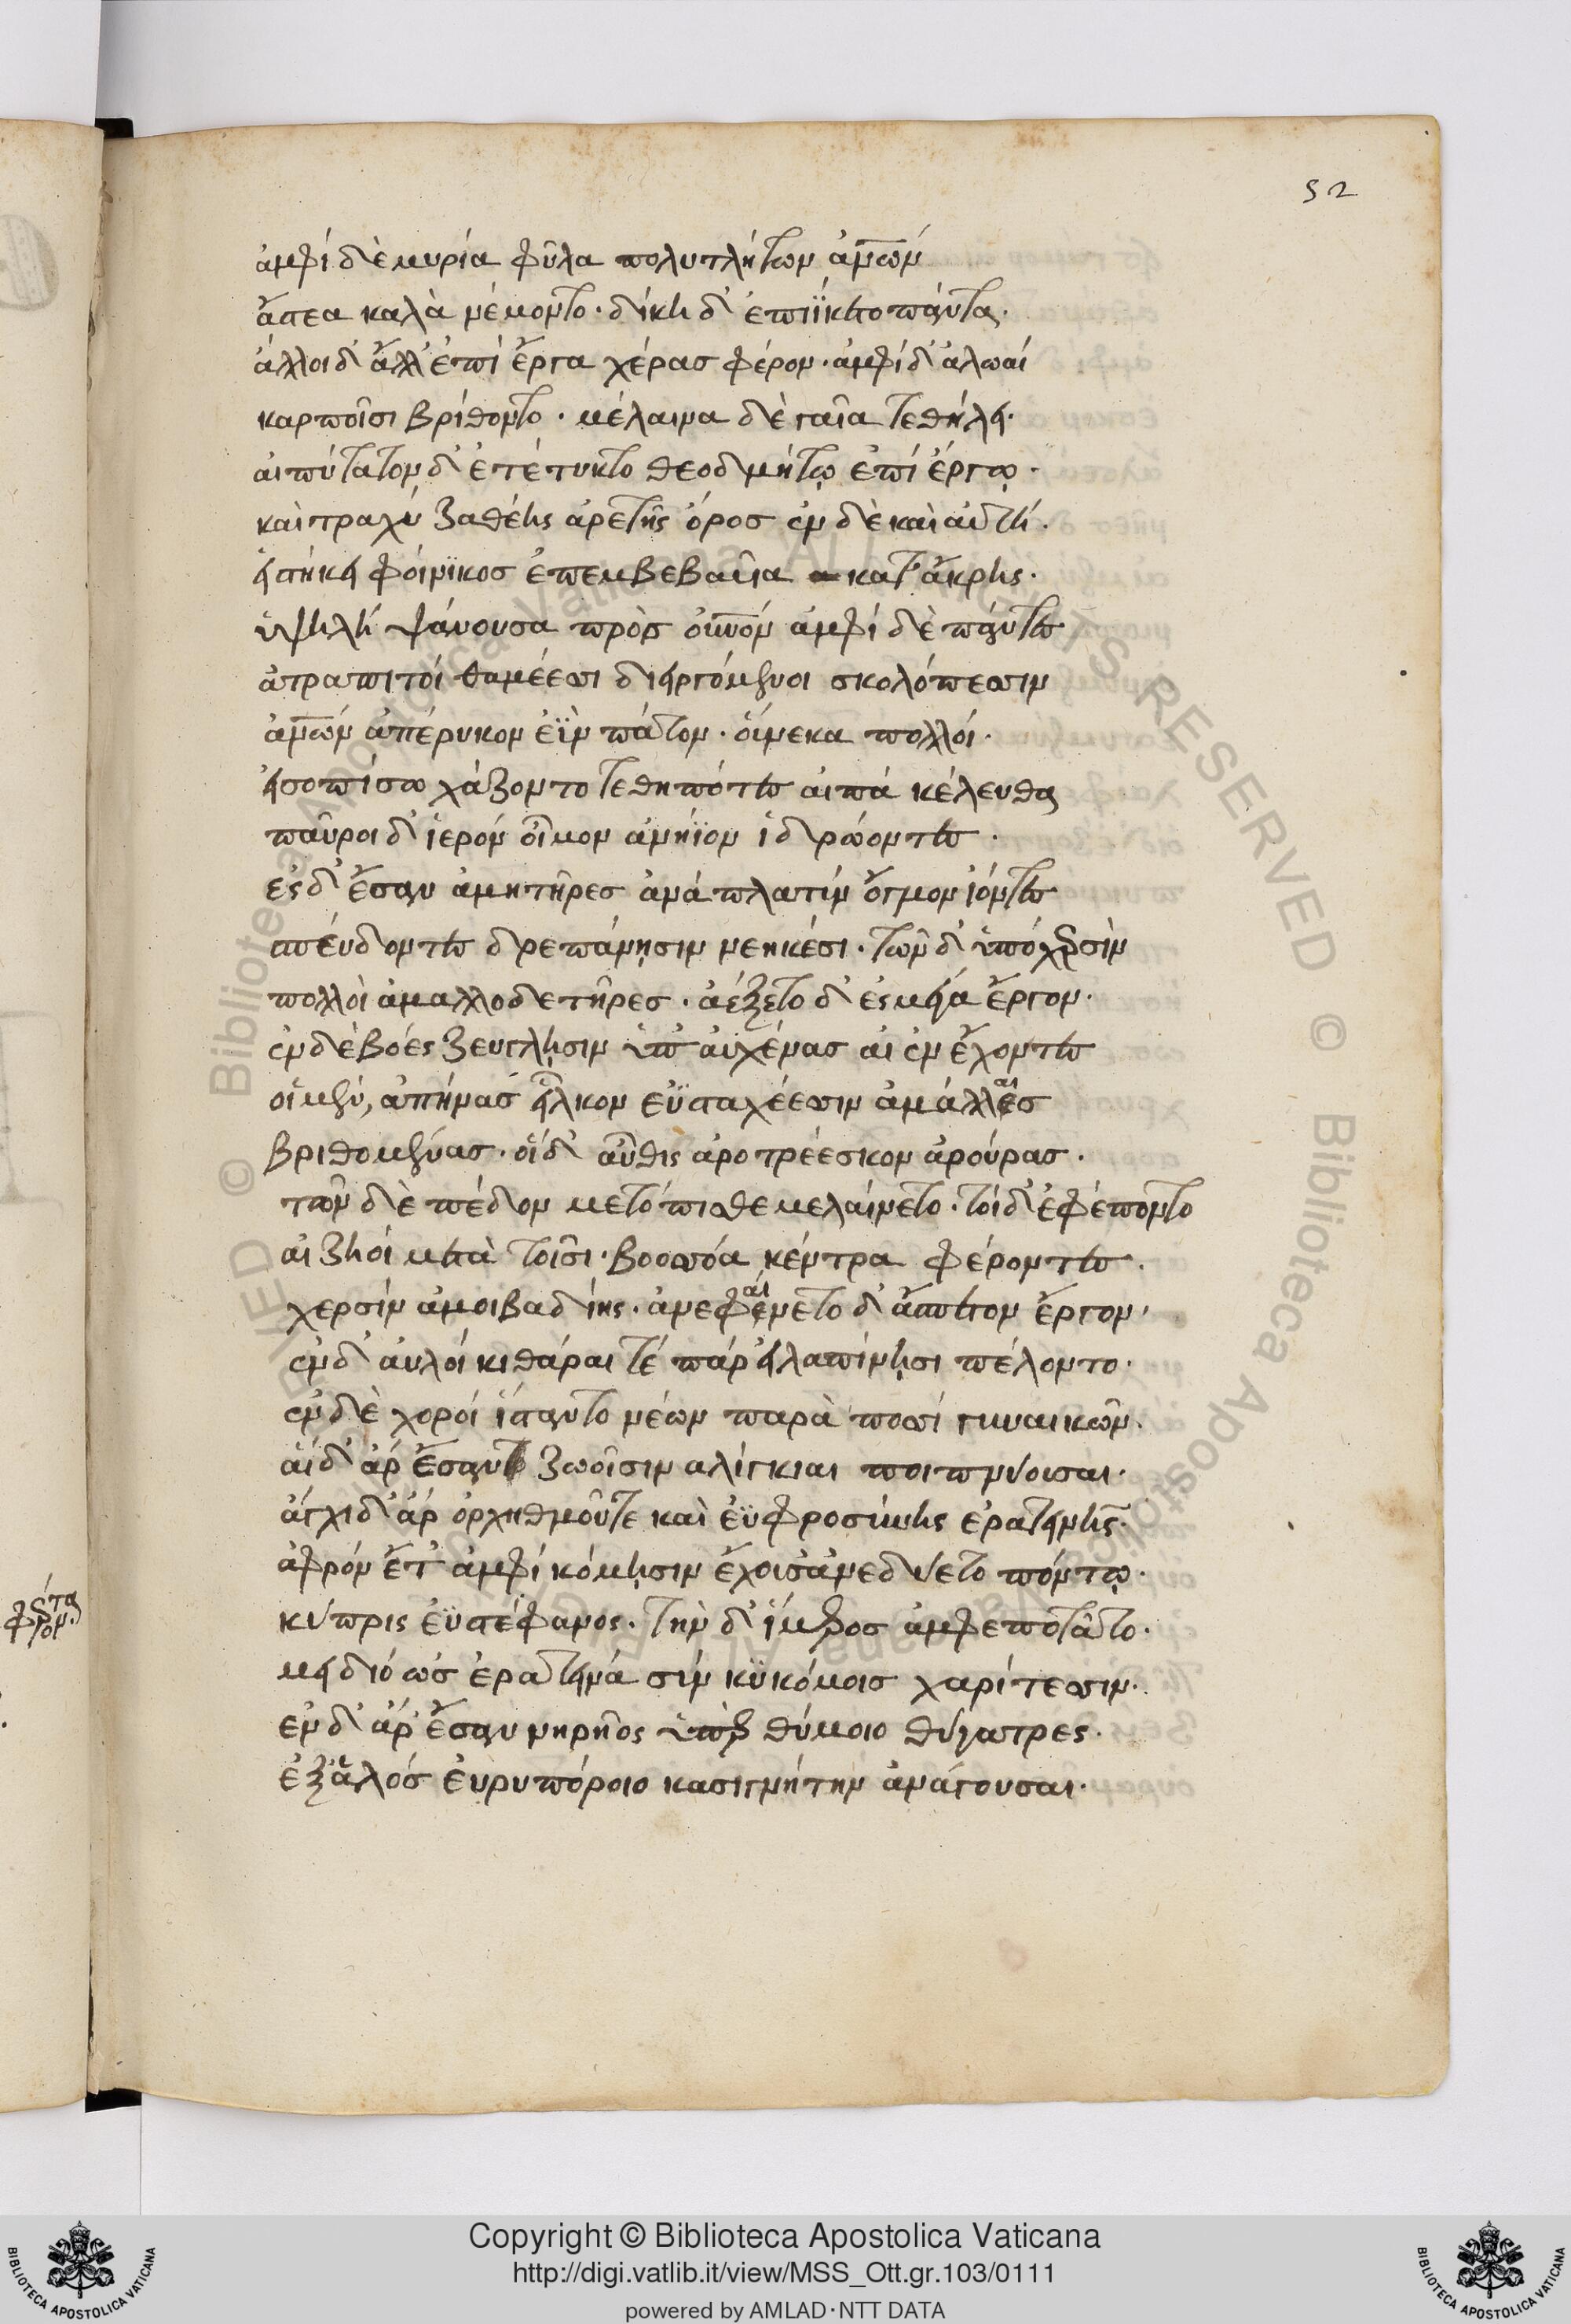 52
ἀμφὶ δὲ μυρία φῦλα πολυτλήτων ἀνων
ἄστεα καλὰ νέμοντο· δίκη δ' ἐπιΐκτο πάντα·
ἄλλοι δ' ἄλλ' ἐπὶ ἔργα χέρας φέρον· ἀμφὶ δ' ἀλωαί
καρποῖσι βρίθοντο· μέλαινα δὲ γαῖα τεθήλει·
αἰπύτατον δ' ἐτέτυκτο θεοδμήτῳ ἐπὶ ἔργῳ·
καὶ τραχὺ ζαθέης ἀρετῆς ὄρος ἐν δὲ καὶ αὐτή·
εἱστήκει φοίνϊκος ἐπεμβεβαυῖα κατ' ἄκρης·
ὑψηλὴ ψάυουσα πρὸς οὐνον ἀμφὶ δὲ πάντη
ἀτραπιτοί θαμέεσσι διειργόμεναι σκολόπεσσιν
ἀνων ἀπέρυκον ἐϋν πάτον· οὕνεκα πολλοί·
εἰσοπίσω χάζοντο τεθηπότες αἰπὰ κέλευθα
παῦροι δ' ἱερὸν οἶμον ἀνήϊον ἱδρώοντες·
ἐς δ' ἔσαν ἀμητῆρες ἀνὰ πλατὺν ὄγμον ἰόντες
σπεύδοντες δρεπάνῃσιν νεηκέσι· τῶν δ' ὑπὸ χερσὶν
πολλοὶ ἀμαλλοδετῆρες· ἀέξετο δ' ἐς μέγα ἔργον·
ἐν δὲ βόες ζευγλῃσιν ὑπ' αὐχένας αἰὲν ἔχοντες
οἱ μέν, ἀπήνας εἷλκον ἐϋσταχέεσσιν ἀμάλλαις
βριθομένας· οἱ δ' αὖθις ἀροτρέεσκον ἀρούρας·
τῶν δὲ πέδον μετόπισθε μελαίνετο· τοὶ δ' ἐφέποντο
αἰζηοί μετὰ τοῖσι· βοοσσόα κέντρα φέροντες·
χερσὶν ἀμοιβαδίης· ἀνεφαίνετο δ' ἄσπετον ἔργον·
ἐν δ' αὐλοὶ κιθάραι τέ παρ' εἰλαπίνῃσι πέλοντο·
ἐν δὲ χοροὶ ἵσταντο νέων παρὰ ποσσί γυναικῶν·
αἱ δ' ἄρ' ἔσαν ζωοῖσιν αλίγκιαι ποιπνύουσαι·
ἄγχι δ' ἄρ' ὀρχηθμοῦτε καὶ ἐϋφροσύνης ἐρατεινῆς·
ἀφρὸν ἔτ' ἀμφὶ κόμῃσιν ἔχουσ' ἀνεδύετο πόντῳ·
κύπρις ἐϋστέφανος· τὴν δ' ἵμερος ἀμφεποτᾶτο·
μειδιόωσ' ἐρατεινὰ σὺν κϋκόμοις χαρίτεσσιν·
ἐν δ' ἄρ' ἔσαν νηρῆος ὑπερθύμοιο θύγατρες·
ἐξ ἁλὸς ἐυρυπόροιο κασιγνήτην ἀνάγουσαι·
Copyright © Biblioteca Apostolica Vaticana
http://digi.vatlib.it/view/MSS_Ott.gr.103/0111
powered by AMLAD·NTT DATA